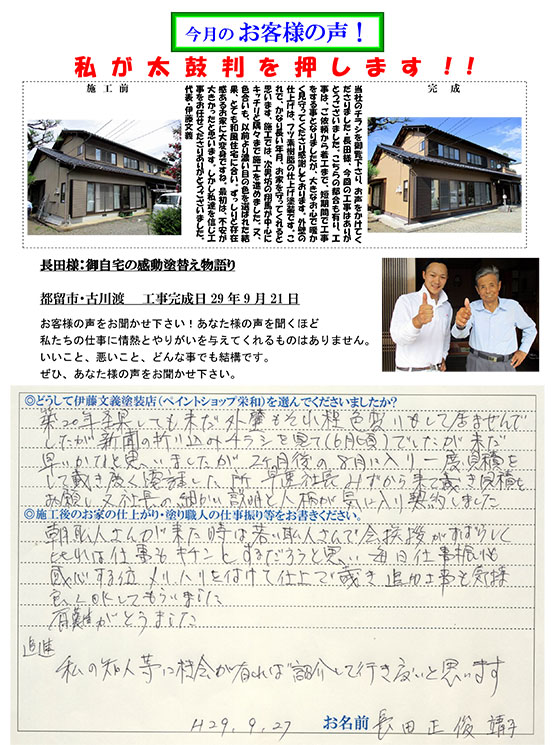 今月の お客様の声！
私が太鼓判を押します!!
施工前
完成
当社のチラシを御覧下さり、お声をかけてく
ださりました長田様、今回の工事はありが
とうございました。こちらの都合も有り、工
事は、ご依頼から着工まで、短期間で工事
をする事となりましたが、大きなお心で暖か
く見守ってくださり感謝しております。外壁の
仕上げは、フッ素樹脂の仕上げ塗装です。こ
れで、かなり長い年月、お家を守ってくれると
思います。施工では、次男坊の翔馬が中心に
キッチリと隅々まで施工を進めました。又、
色合いも、以前より濃い目の色を選ばれた結
果、とても和風住宅に合い、ずっしりと存在
感あるお家に大変身ですね。最初は、不安が
大きかったと思います。しかし私達を信じ工
事をお任せくださりありがとうございました。
代表・伊藤文義
長田様：御自宅の感動塗替え物語り
都留市・古川渡　工事完成日29年9月21日
お客様の声をお聞かせ下さい！あなた様の声を聞くほど
私たちの仕事に情熱とやりがいを与えてくれるものはありません。
いいこと、悪いこと、どんな事でも結構です。
ぜひ、あなた様の声をお聞かせ下さい。
◎どうして伊藤文義塗装店（ペイントショップ栄和）を選んでくださいましたか？
築20年経過しても未だ外壁もそれ程色褪いもして居ませんで
したが新聞の折り込みチラシを見て(6月頃)でしたが未だ
早いかなと思いましたが2ヶ月後の8月に入り一度見積を
して戴き度く電話しました所 早速社長みずから来て戴き見積を
お願し又社長の細かい説明と人柄が気に入り契約しました
◎施工後のお家の仕上がり・塗り職人の仕事振り等をお書きください。
朝職人さんが来た時は若い職人さんで合挨拶がすばらしく
此れは仕事もキチンとするだろうと思い 毎日仕事振りも
感心する位メリハリを付けて仕上て戴き 追加工事も気持
良くOKしてもらいました
有難がとうました
追進
私の知人等に機会が有れば紹介して行き度いと思います
H29.9.27
お名前 長田正俊 靖子